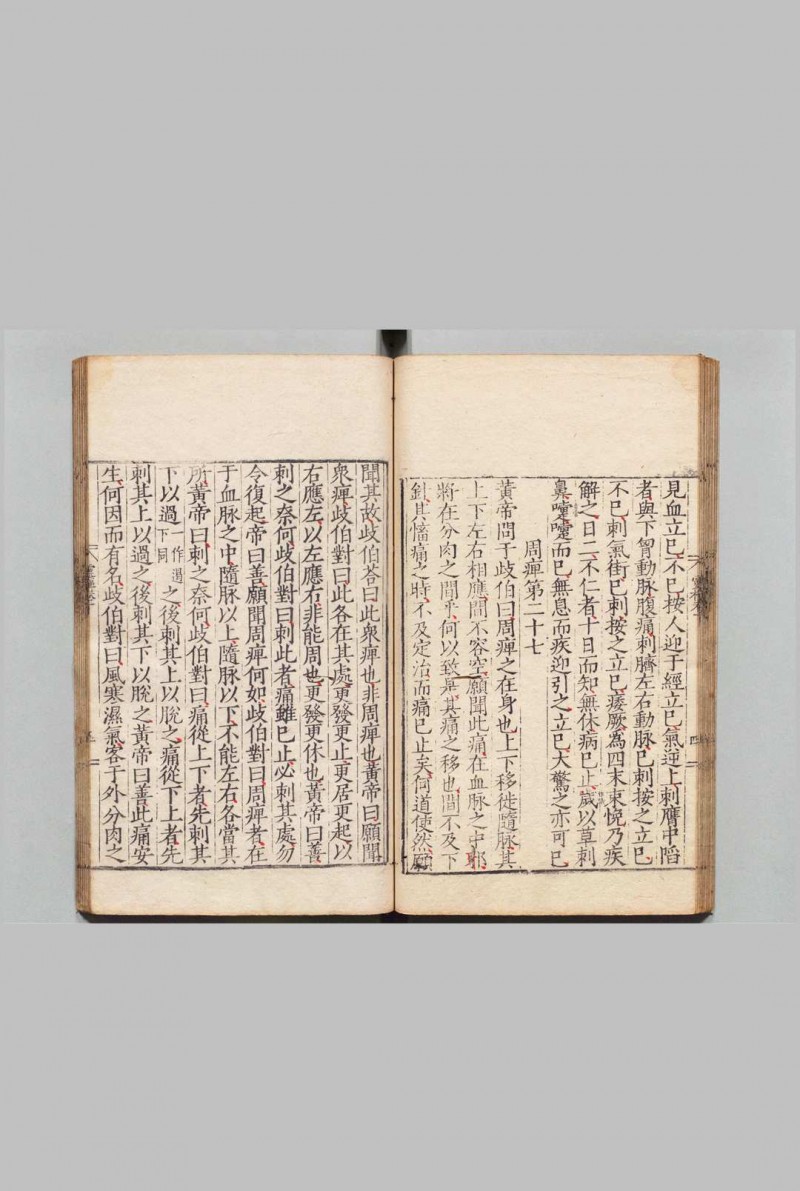 見血立已不已按人迎于經立已氣逆上刺膺中䧟
者與下胷動脉腹痛刺臍左右動脉已刺按之立已
不已刺氣街已刺按之立已痿厥為四末束悗乃疾
解之日二不仁者十日而知無休病已止歲以草刺
鼻嚏嚏而已無息而疾迎引之立已大驚之亦可已
周痺第二十七
黃帝問于歧伯曰周痺之在身也上下移徙隨脉其
上下左右相應間不容空願聞此痛在血脉之中耶
將在分肉之間乎何以致是其痛之移也間不及下
針其慉痛之時不及定治而痛已止矣何道使然願
聞其故歧伯荅曰此衆痺也非周痺也黃帝曰願聞
衆痺歧伯對曰此各在其處更發更止更居更起以
右應左以左應右非能周也更發更休也黃帝曰善
刺之奈何歧伯對曰刺此者痛雖已止必刺其處勿
令復起帝曰善願聞周痺何如歧伯對曰周痺者在
于血脉之中隨脉以上隨脉以下不能左右各當其
所黃帝曰刺之奈何歧伯對曰痛從上下者先刺其
下以過一作遏下同之後刺其上以脫之痛從下上者先
刺其上以過之後刺其下以脫之黃帝曰善此痛安
生何因而有名歧伯對曰風寒濕氣客于外分肉之